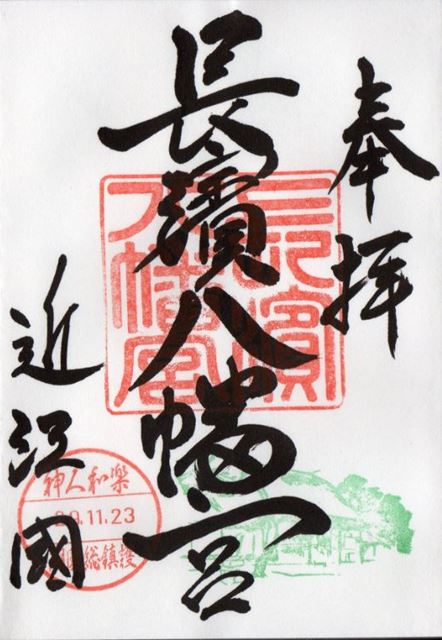 奉拝
長濱八幡宮
長濱八幡宮
近江國
神人和楽
.11.23
総鎮護